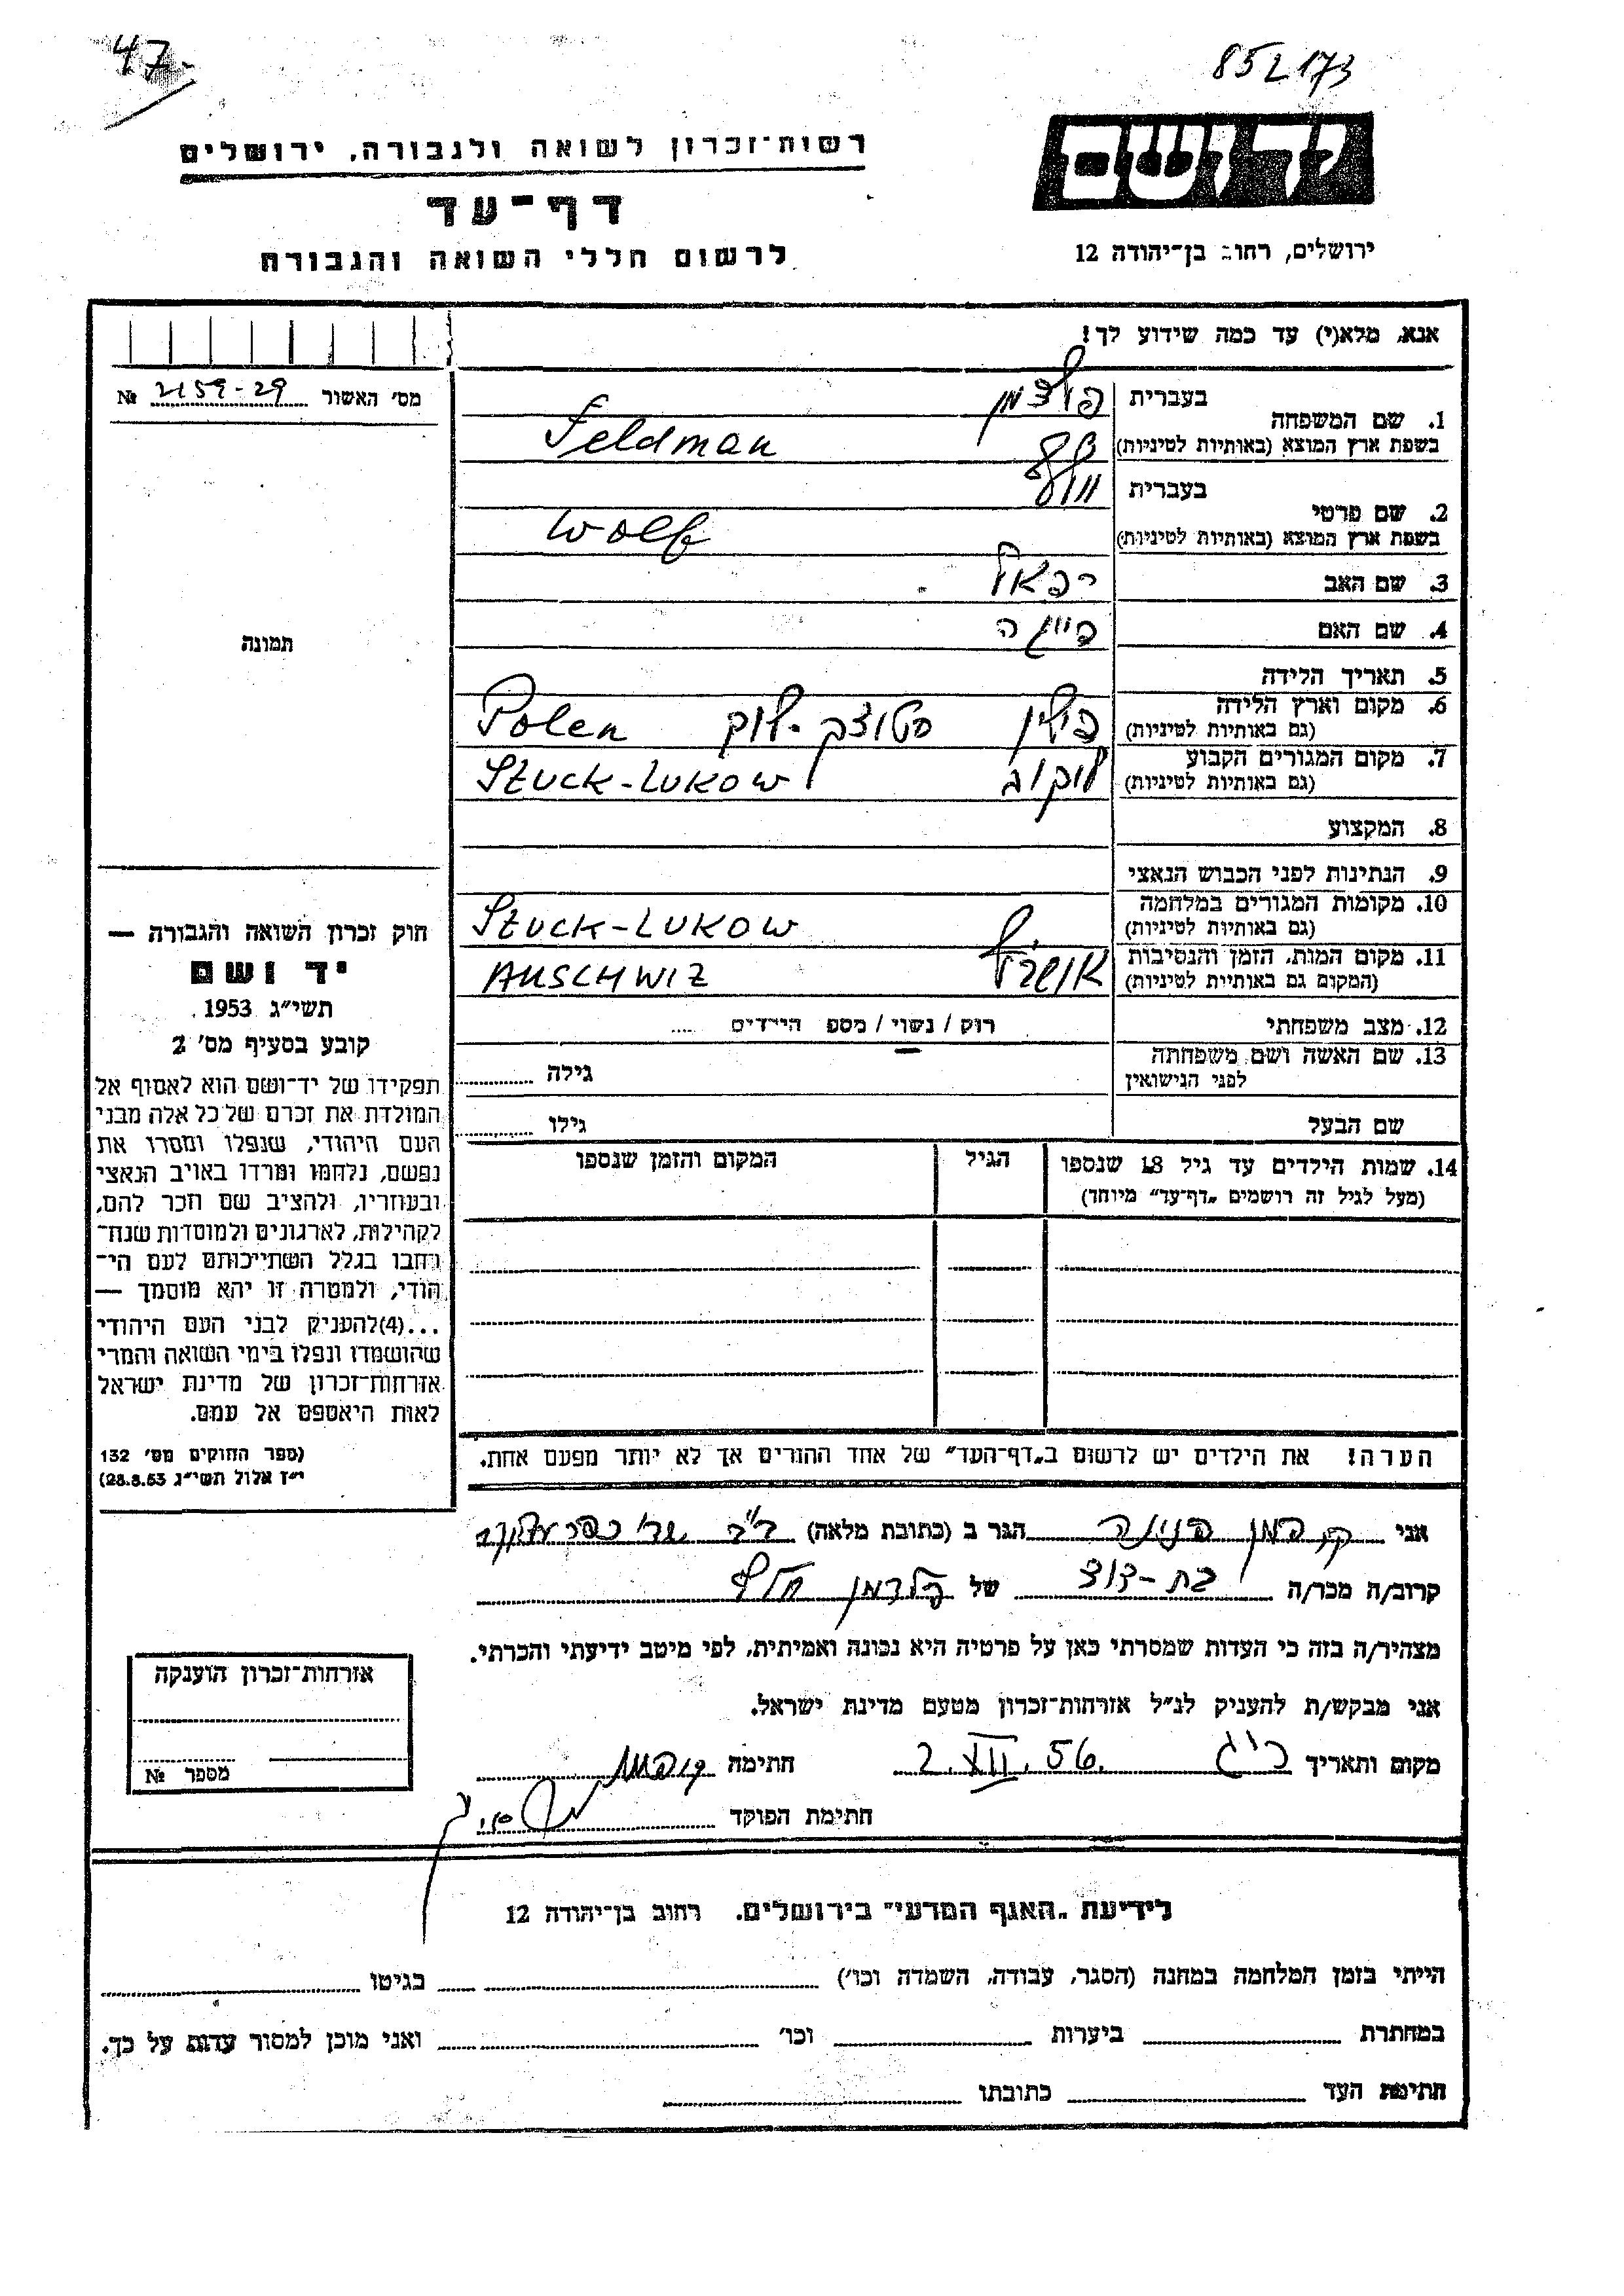 47-
852173
יד ושם
רשות־זכרון לשואה ולגבורה, ירושלים
דף־עד
לרשום חללי השואה והגבורה
ירושלים, רחוב בן־יהודה 12
אנא, מלא(י) עד כמה שידוע לך!
מס׳ האשור 2159-29 №
1. שם המשפחה בעברית
בשפת ארץ המוצא (באותיות לטיניות) Feldman
2. שם פרטי בעברית
בשפת ארץ המוצא (באותיות לטיניות) Wolf
3. שם האב רפאל
4. שם האם פייגה
5. תאריך הלידה
6. מקום וארץ הלידה (גם באותיות לטיניות) פולין Polen
7. מקום המגורים הקבוע (גם באותיות לטיניות) לוקוב Stuck-Lukow
8. המקצוע
9. הנתינות לפני הכבוש הנאצי
10. מקומות המגורים במלחמה (גם באותיות לטיניות) Stuck-Lukow
11. מקום המות, הזמן והנסיבות (המקום גם באותיות לטיניות) AUSCHWIZ
12. מצב משפחתי רוק / נשוי / מספ הירדים ....
13. שם האשה ושם משפחתה לפני הנישואין גילה
שם הבעל גילו
14. שמות הילדים עד גיל 18 שנספו
(מעל לגיל זה רושמים „דף־עד״ מיוחד)
הגיל
המקום והזמן שנספו
הערה! את הילדים יש לרשום ב„דף־העד״ של אחד ההורים אך לא יותר מפעם אחת.
תמונה
חוק זכרון השואה והגבורה —
יד ושם
תשי״ג 1953
קובע בסעיף מס׳ 2
תפקידו של יד־ושם הוא לאסוף אל
המולדת את זכרם של כל אלה מבני
העם היהודי, שנפלו ומסרו את
נפשם, נלחמו ומרדו באויב הנאצי
ובעוזריו, ולהציב שם וזכר להם,
לקהילות, לארגונים ולמוסדות שנח־
רבו בגלל השתייכותם לעם הי־
הודי, ולמטרה זו יהא מוסמך —
...(4)להעניק לבני העם היהודי
שהושמדו ונפלו בימי השואה והמרי
אזרחות־זכרון של מדינת ישראל
לאות היאספם אל עמם.
(ספר החוקים מס׳ 132
י״ז אלול תשי״ג 28.8.53)
אני הגר ב (כתובת מלאה)
קרוב/ה מכר/ה בת-דוד של פלדמן
מצהיר/ה בזה כי העדות שמסרתי כאן על פרטיה היא נכונה ואמיתית, לפי מיטב ידיעתי והכרתי.
אני מבקש/ת להעניק לנ״ל אזרחות־זכרון מטעם מדינת ישראל.
מקום ותאריך 2.XII.56. חתימה
חתימת הפוקד
אזרחות־זכרון הוענקה
מספר №
לידיעת „האגף המדעי״ בירושלים. רחוב בן־יהודה 12
הייתי בזמן המלחמה במחנה (הסגר, עבודה, השמדה וכו׳) בגיטו
במחתרת ביערות וכו׳ ואני מוכן למסור עדות על כך.
חתימת העד כתובתו